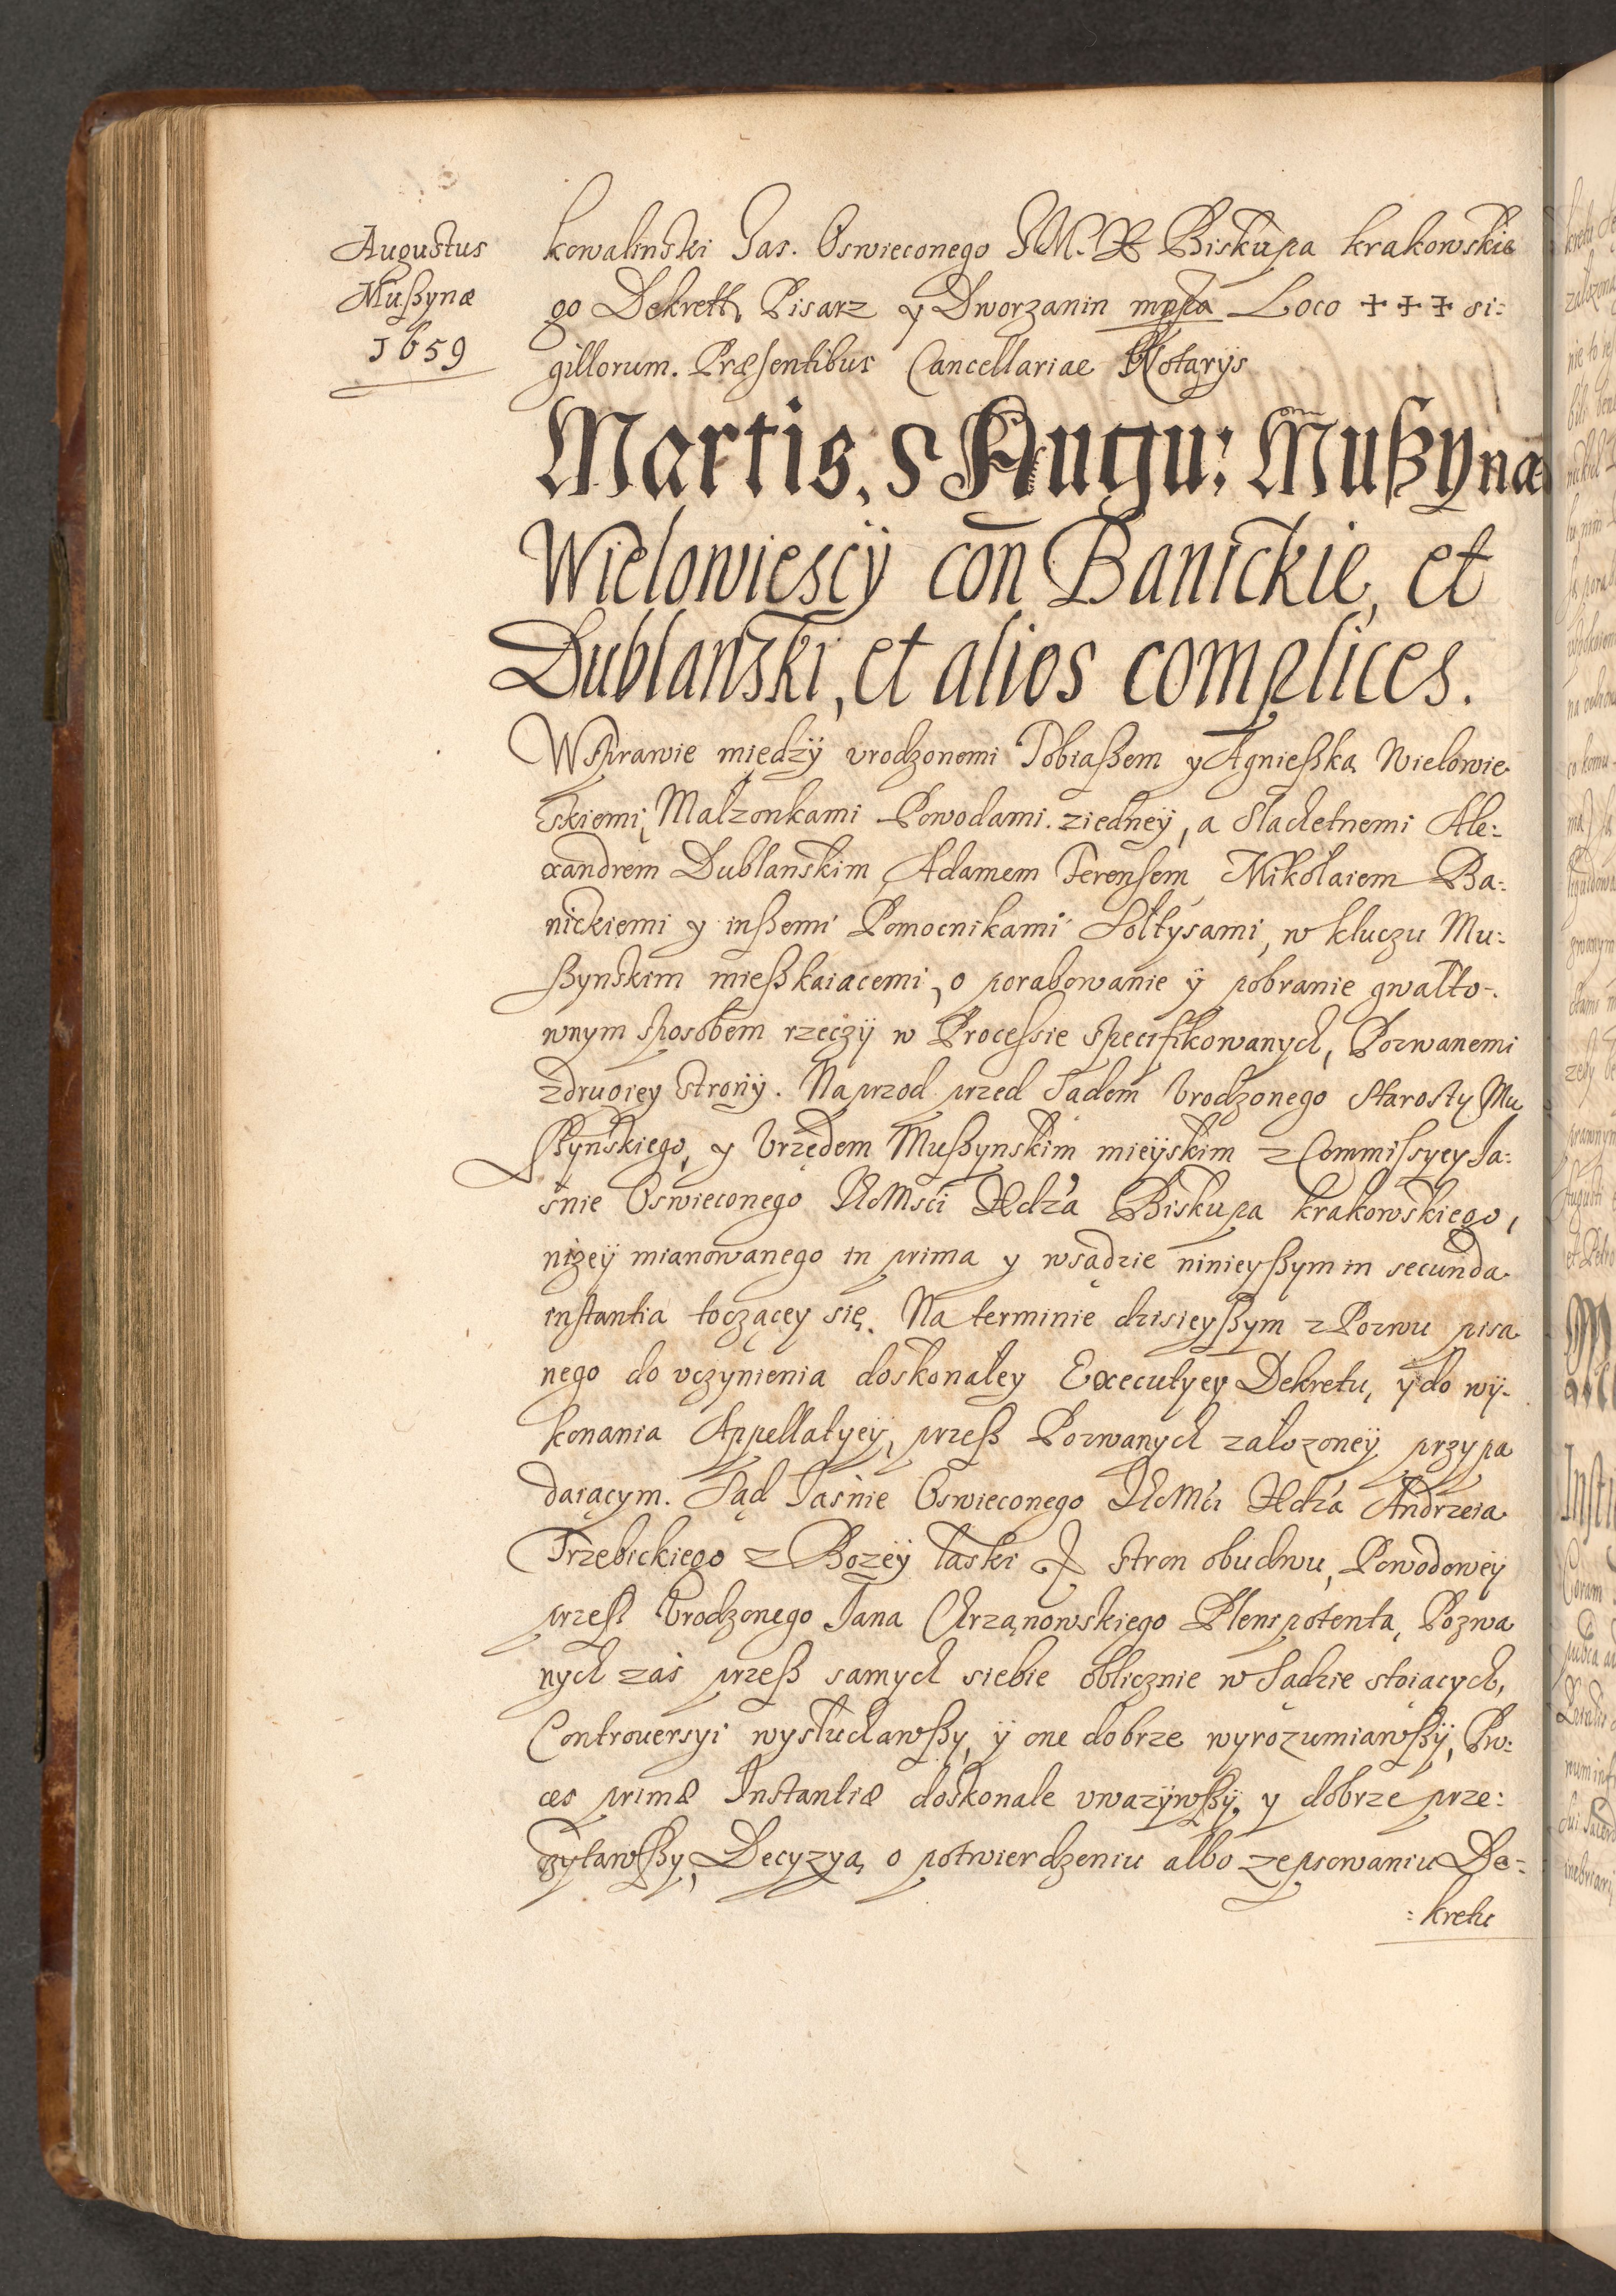 Augustus
Mußynæ
1659
kowalinski Jas. Oswieconego JM. X Biskupa krakowskie
go Dekrett. Pisarz y Dworzanin mppa Loco + + + si:
gillorum. Præsentibus Cancellariae Notarÿs
Martis, 5 Augu: Mußynæ
Wielowiescÿ con Banickie, et
Dublanski, et alios complices.
W Sprawie międzÿ vrodzonemi Tobiaßem y Agnießką Wielowie
skiemi, Malzonkami Powodami ziedneÿ, a Slachetnemi Ale:
xandrem Dublanskim, Adamem Ferensem Mikołaiem Ba:
nickiemi y inßemi Pomocnikami Sołtysami, w kluczu Mu:
ßynskim mießkaiacemi, o porabowanie ÿ pobranie gwałto-
wnym sposobem rzeczÿ w Processie specifikowanych, Pozwanemi
zdrugiey stronÿ. Naprzod przed Sadem Vrodzonego Starosty Mu
ßynskiego, y Vrzędem Mußynskim mieÿskim z Commissyey Ja:
śnie Oswieconego JEoMsci Xdza Biskupa krakowskiego,
nizeÿ mianowanego in prima y wsądzie ninieyßym in secunda
instantia toczącey się. Na terminie dzisieyßym z Pozwu pisa
nego do vczynienia doskonałey Executyey Dekretu, ÿ do wÿ-
konania Appellatyeÿ, przeß Pozwanych załozoneÿ przypa
daiącym. Sąd Jaśnie Oswieconego JEoMci Xdza Andrzeia
Trzebickiego z Bozeÿ łaski stron obudwu, Powodoweÿ
przeß Vrodzonego Jana Chrzanowskiego Plenipotenta, Pozwa
nych zaś przeß samych siebie oblicznie w Sądzie stoiących,
Controuersyi wysłuchawßy, ÿ one dobrze wyrozumiawßÿ, Pro:
ces primæ Instantiæ doskonale vwazÿwßÿ, y dobrze prze:
czytawßy, Decyzyą o potwierdzeniu albo zepsowaniu De:
: kretu